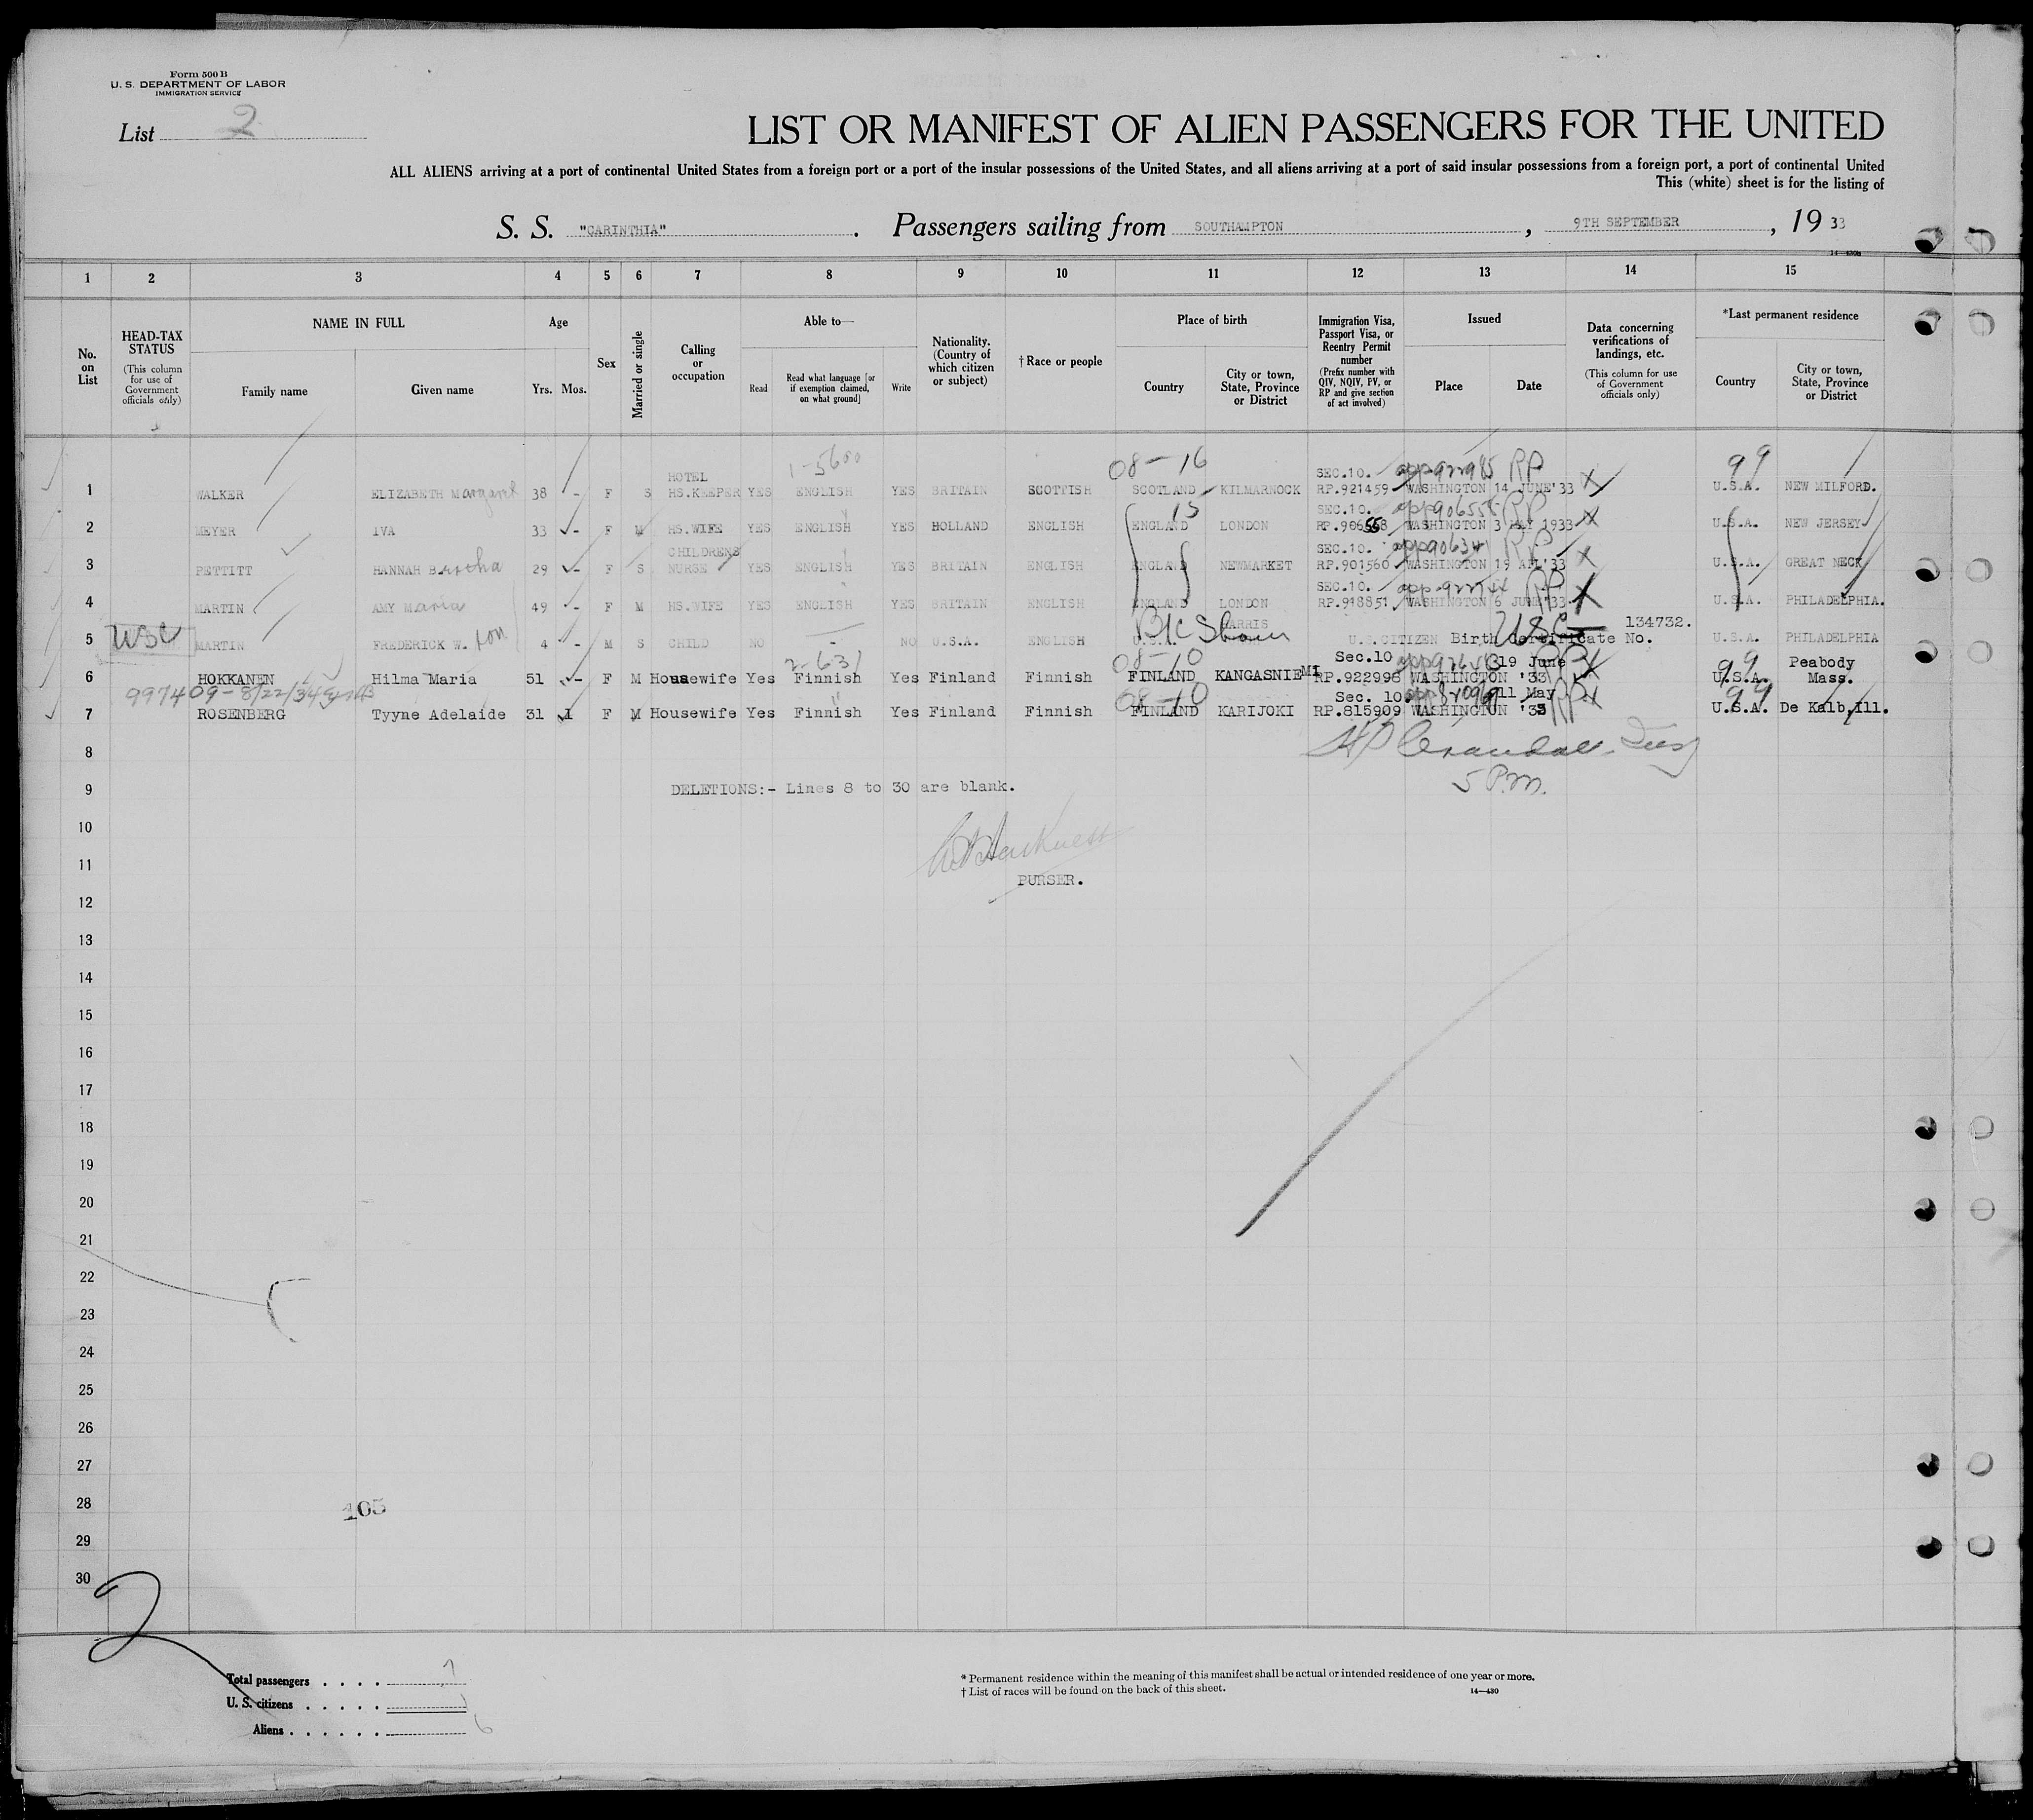 Form 500 B
U. S. DEPARTMENT OF LABOR
IMMIGRATION SERVICE
List 2
LIST OR MANIFEST OF ALIEN PASSENGERS FOR THE UNITED
ALL ALIENS arriving at a port of continental United States from a foreign port or a port of the insular possessions of the United States, and all aliens arriving at a port of said insular possessions from a foreign port, a port of continental United
This (white) sheet is for the listing of
S. S. "CARINTHIA" . Passengers sailing from SOUTHAMPTON , 9TH SEPTEMBER , 19 33
1 2 3 4 5 6 7 8 9 10 11 12 13 14 15
No. on List
HEAD-TAX STATUS (This column for use of Government officials only)
NAME IN FULL Family name Given name
Age Yrs. Mos.
Sex
Married or single
Calling or occupation
Able to— Read Read what language [or if exemption claimed, on what ground] Write
Nationality. (Country of which citizen or subject)
† Race or people
Place of birth Country City or town, State, Province or District
Immigration Visa, Passport Visa, or Reentry Permit number (Prefix number with QIV, NQIV, PV, or RP and give section of act involved)
Issued Place Date
Data concerning verifications of landings, etc. (This column for use of Government officials only)
*Last permanent residence Country City or town, State, Province or District
08-16 99
HOTEL SEC.10. app922985 RP
1 WALKER ELIZABETH Margaret 38 - F S HS.KEEPER YES ENGLISH YES BRITAIN SCOTTISH SCOTLAND KILMARNOCK RP.921459 WASHINGTON 14 JUNE'33 X U.S.A. NEW MILFORD.
15 SEC.10. RP
2 MEYER IVA 33 - F M HS.WIFE YES ENGLISH YES HOLLAND ENGLISH ENGLAND LONDON RP.906558 WASHINGTON 3 MAY 1933 X U.S.A. NEW JERSEY
CHILDRENS SEC.10. app906341 RP
3 PETTITT HANNAH Bertha 29 - F S NURSE YES ENGLISH YES BRITAIN ENGLISH ENGLAND NEWMARKET RP.901560 WASHINGTON 19 APL'33 X U.S.A. GREAT NECK
SEC.10. RP
4 MARTIN AMY Maria 49 - F M HS.WIFE YES ENGLISH YES BRITAIN ENGLISH ENGLAND LONDON RP.918851 WASHINGTON 6 JUNE'33 X U.S.A. PHILADELPHIA.
USC HARRIS USC 134732.
5 MARTIN FREDERICK W. son 4 - M S CHILD NO - NO U.S.A. ENGLISH U.S.A. U.S.CITIZEN Birth Certificate No. U.S.A. PHILADELPHIA
2-631 08-10 Sec.10 19 June RP 99 Peabody
6 HOKKANEN Hilma Maria 51 - F M Housewife Yes Finnish Yes Finland Finnish FINLAND KANGASNIEMI RP.922998 WASHINGTON '33 X U.S.A. Mass.
08-10 Sec. 10 11 May RP 99
7 ROSENBERG Tyyne Adelaide 31 1 F M Housewife Yes Finnish Yes Finland Finnish FINLAND KARIJOKI RP.815909 WASHINGTON '33 X U.S.A. De Kalb,Ill.
8
5 P.M.
9 DELETIONS:- Lines 8 to 30 are blank.
10
11
PURSER.
12
13
14
15
16
17
18
19
20
21
22
23
24
25
26
27
28
105
29
30
2
Total passengers . . . . 7
U. S. citizens . . . . .
Aliens . . . . . . 6
* Permanent residence within the meaning of this manifest shall be actual or intended residence of one year or more.
† List of races will be found on the back of this sheet. 14—430